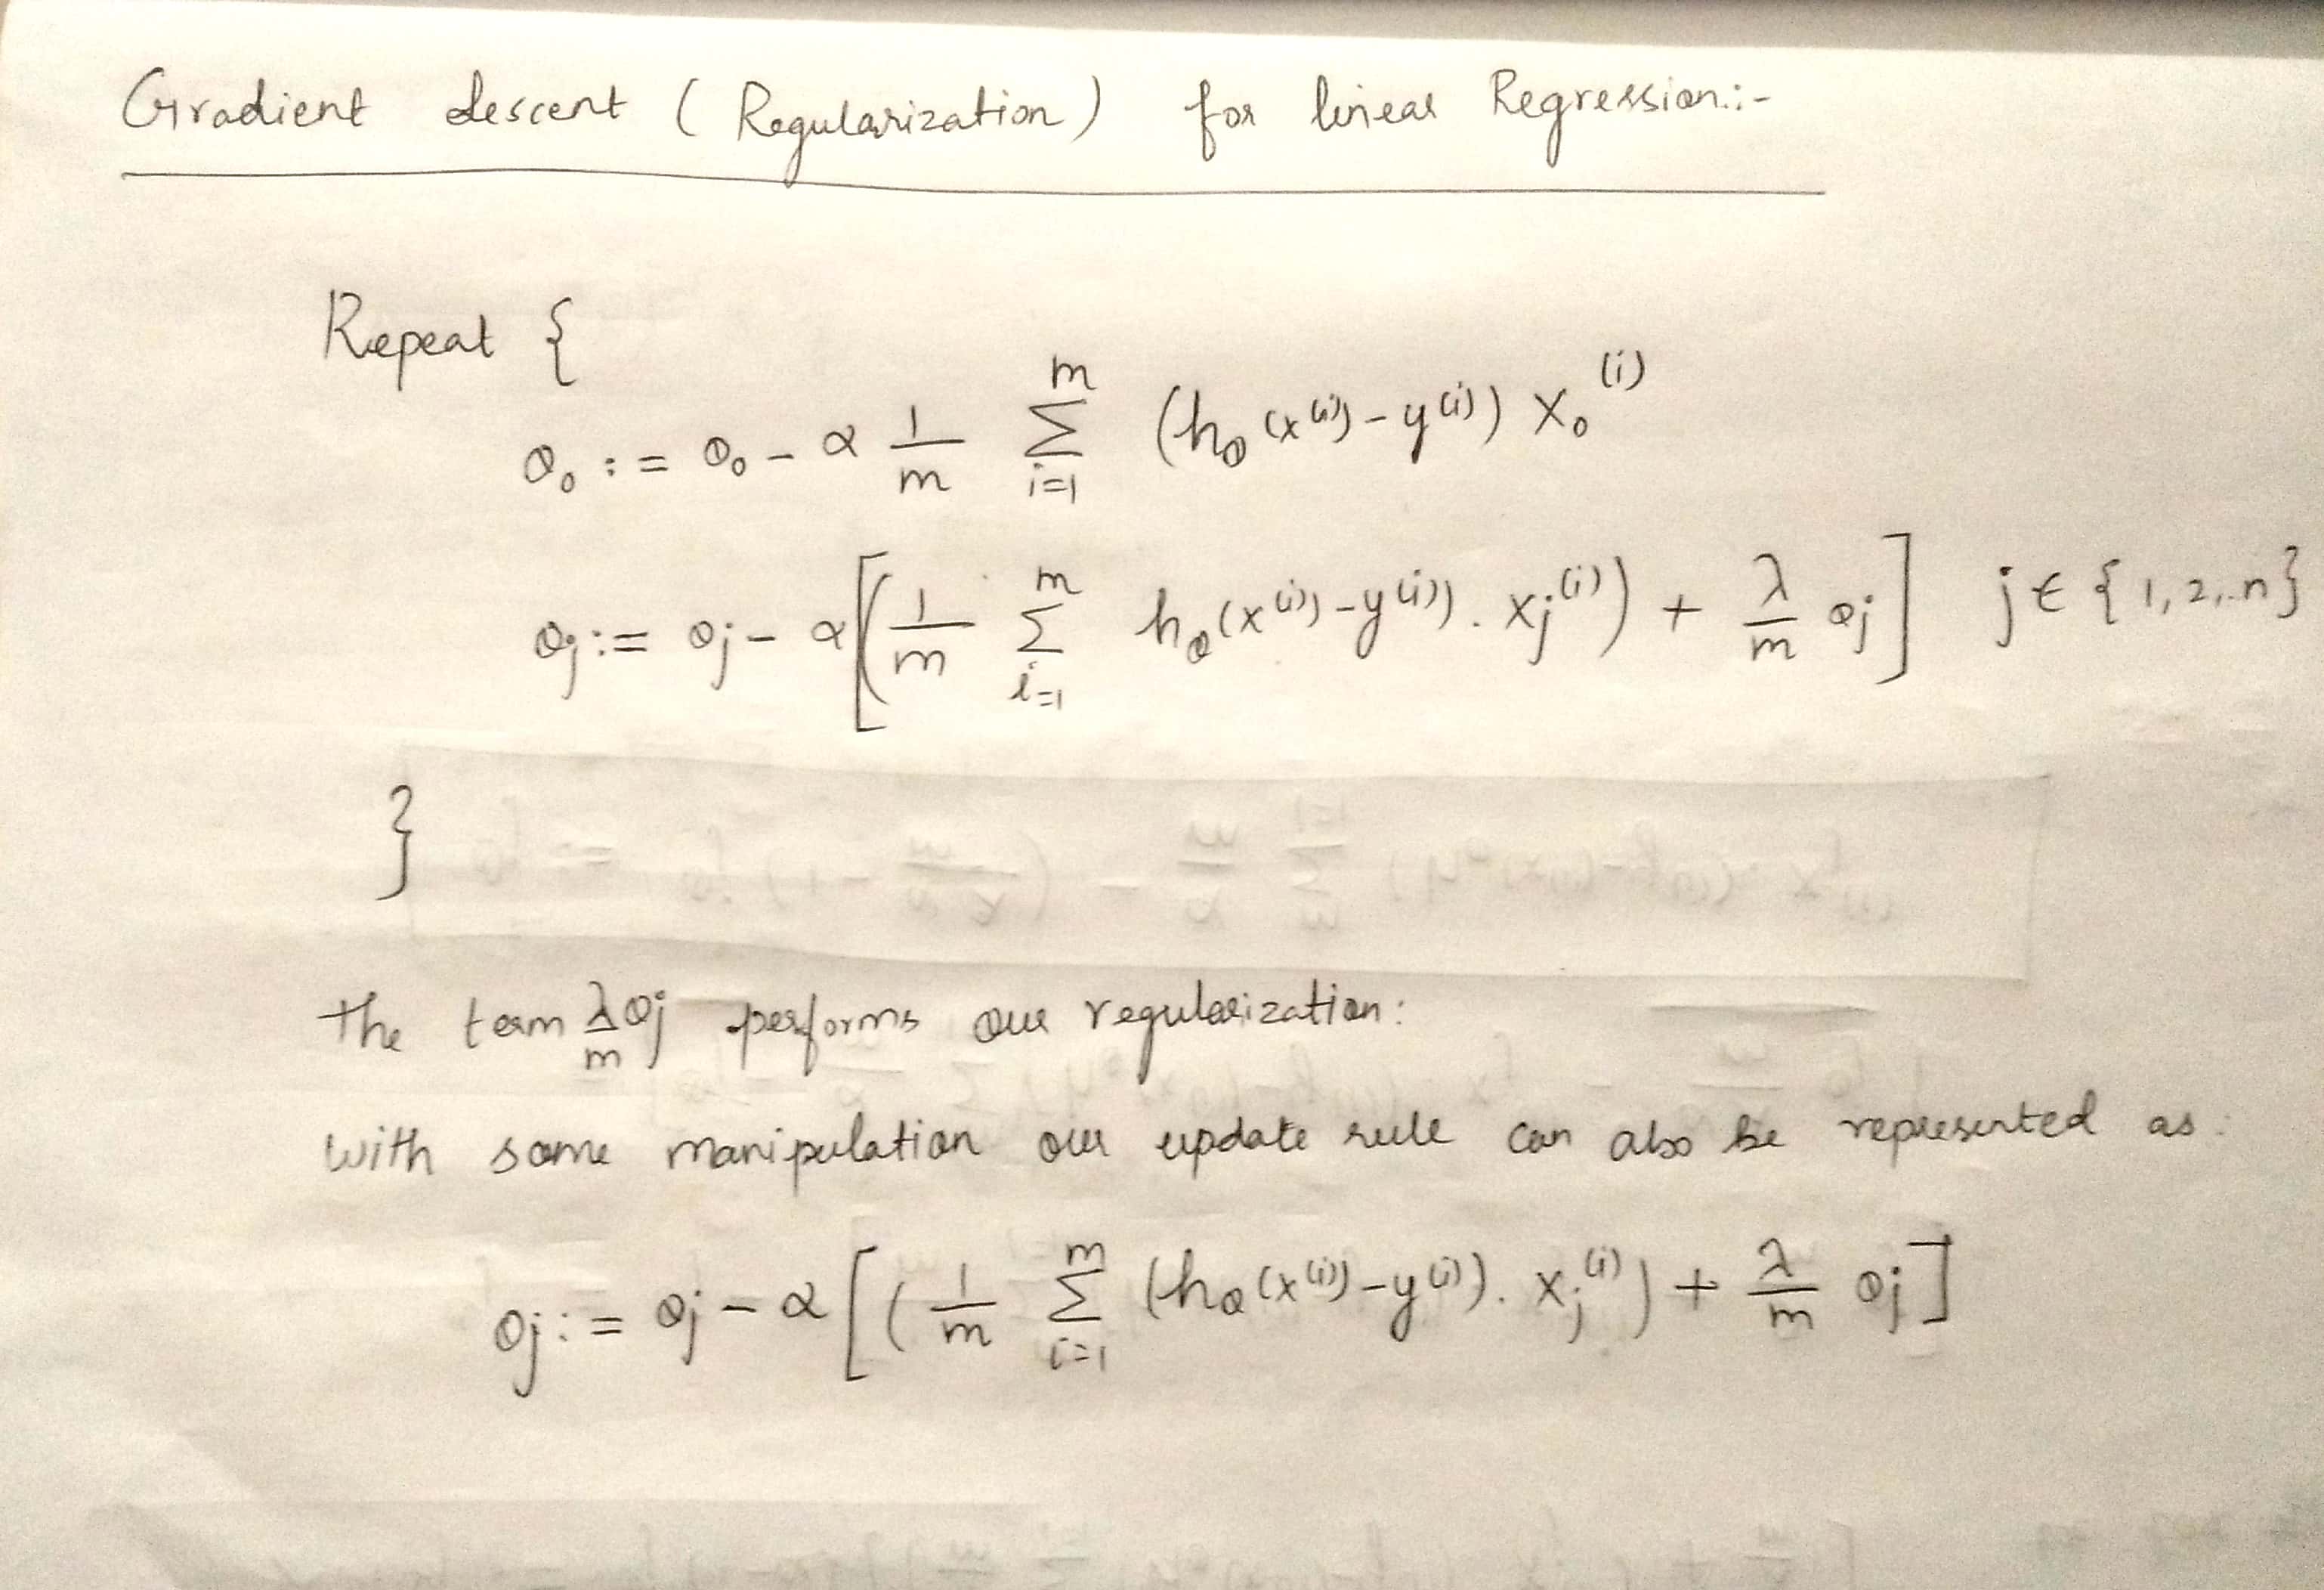 Gradient descent ( Regularization) for linear Regression:-
Repeat {
θ₀ := θ₀ - α 1/m Σ_{i=1}^{m} (h_θ(x^(i)) - y^(i)) x₀^(i)
θj := θj - α[(1/m Σ_{i=1}^{m} h_θ(x^(i)) - y^(i)) . xj^(i)) + λ/m θj] j ∈ {1,2,..n}
}
The term λ/m θj performs our regularization:
with some manipulation our update rule can also be represented as:
θj := θj - α[(1/m Σ_{i=1}^{m} (h_θ(x^(i)) - y^(i)) . xj^(i)) + λ/m θj]